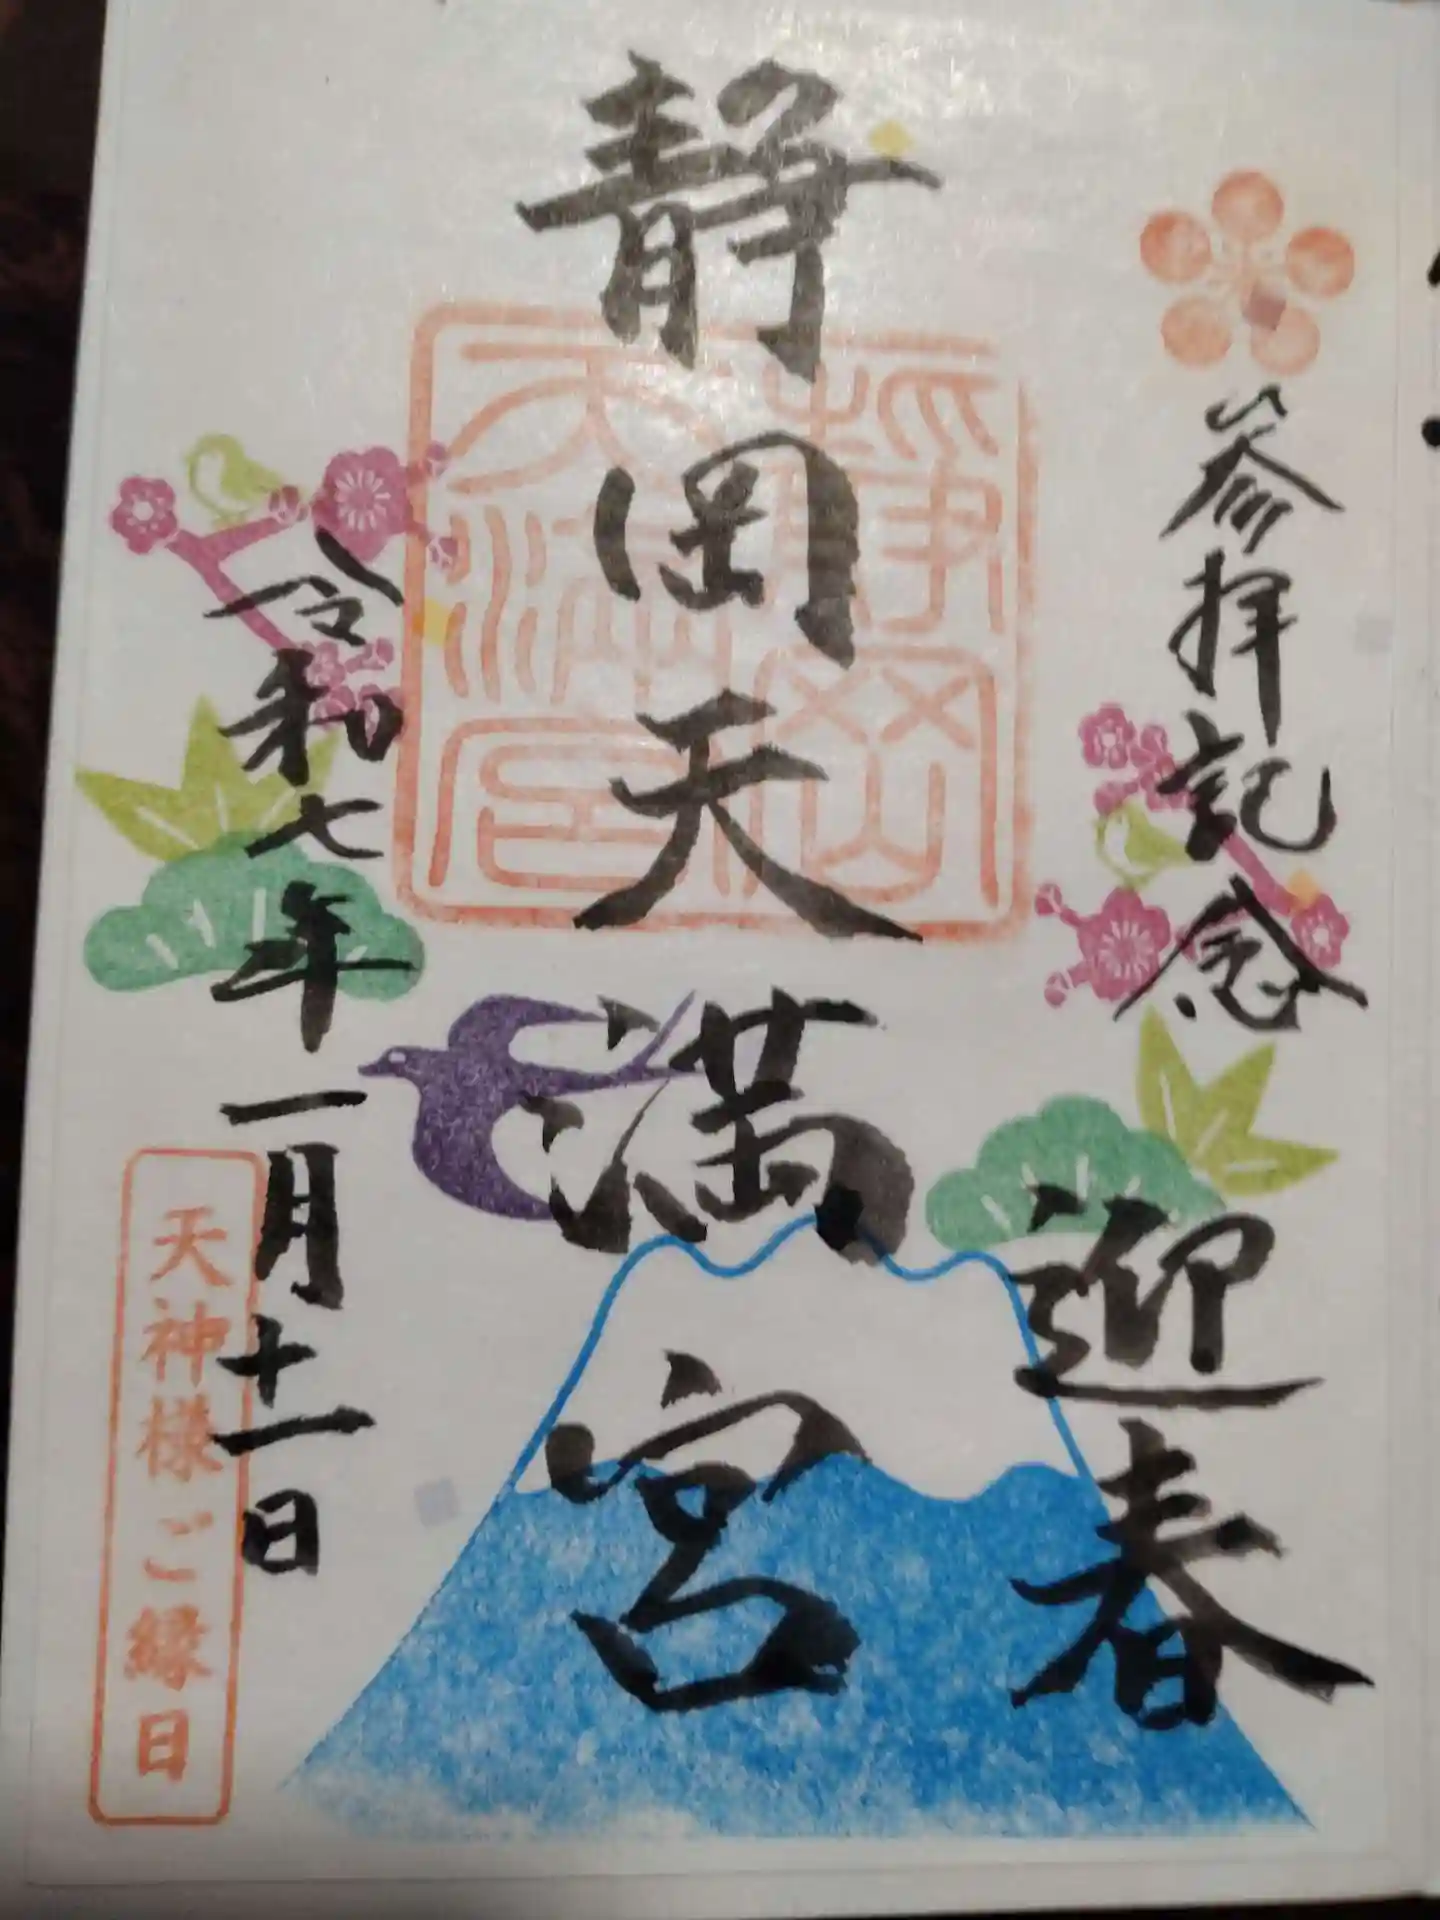 参拝記念
迎春
静岡天満宮
静岡
天満宮
令和七年一月十一日
天神様ご縁日